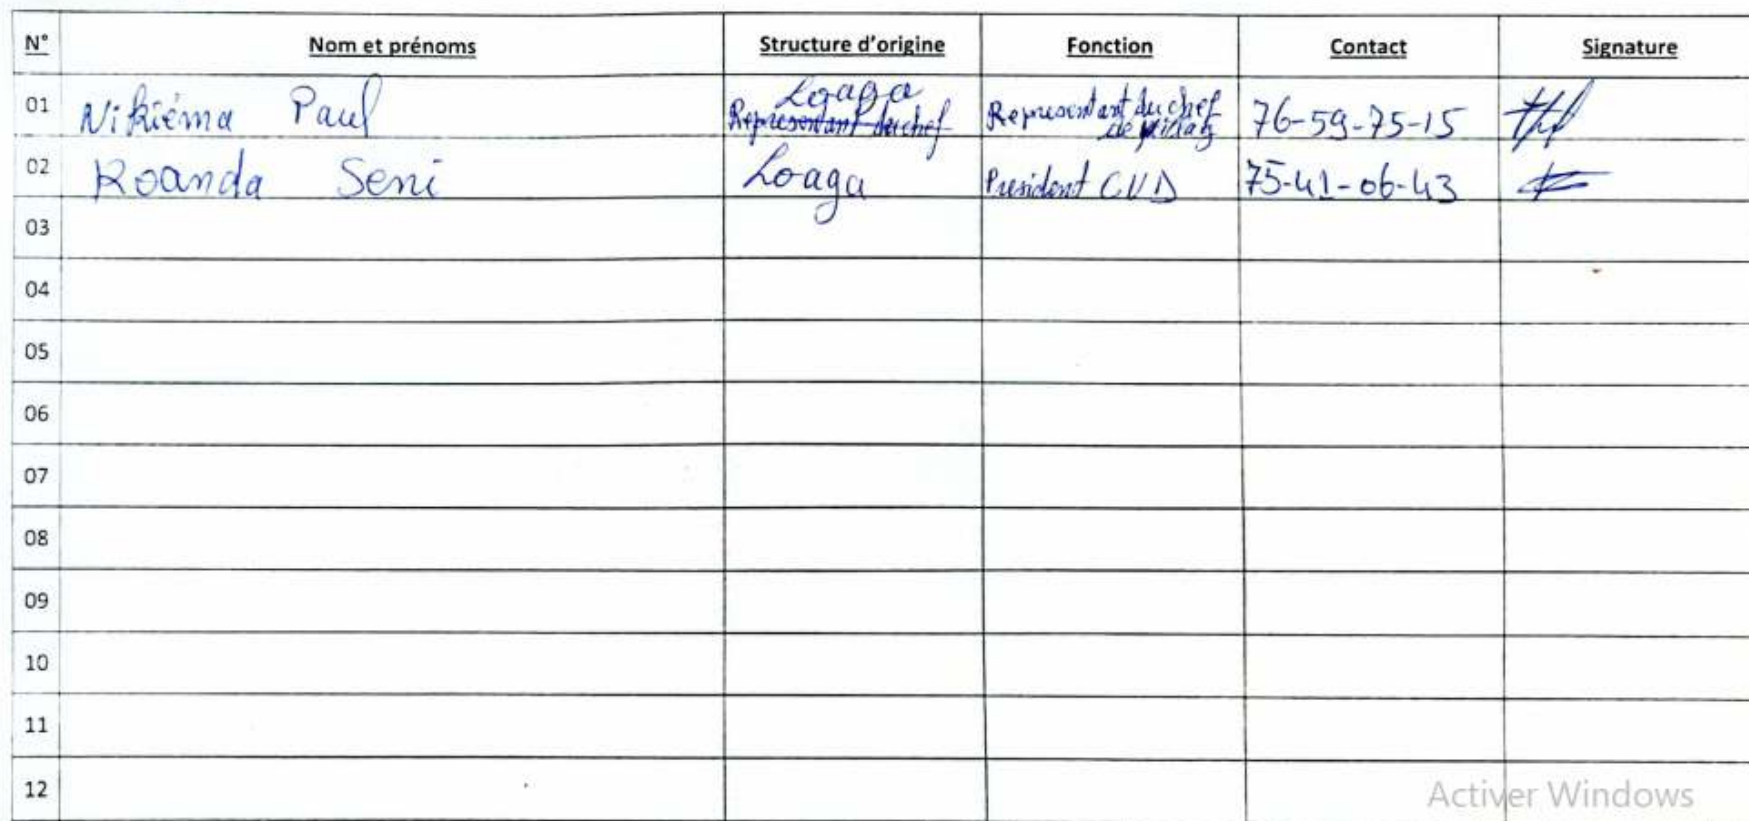 N° Nom et prénoms Structure d'origine Fonction Contact Signature
Loaga
01 Nikiéma Paul Representant du chef Representant du chef 76-59-75-15
de village
02 Roanda Seni Loaga President CVD 75-41-06-43
03
04
05
06
07
08
09
10
11
12
Activer Windows